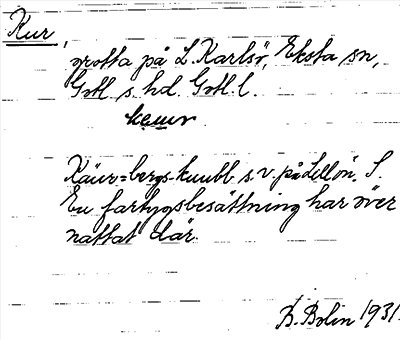 Kur,
grotta på L. Karlsö, Eksta sn,
Gotl s. hd. Gotl. l.
kæur
Käur = bergs-knubb s.v. på Lillön. S.
En fartygsbesättning har över
nattat där.
B. Bolin 1931.